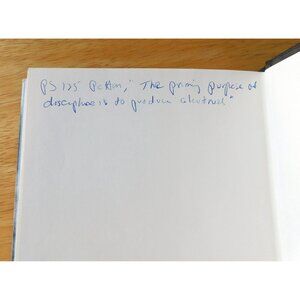 PS 125 Patton; "The primary purpose of
discipline is to produce alertness"